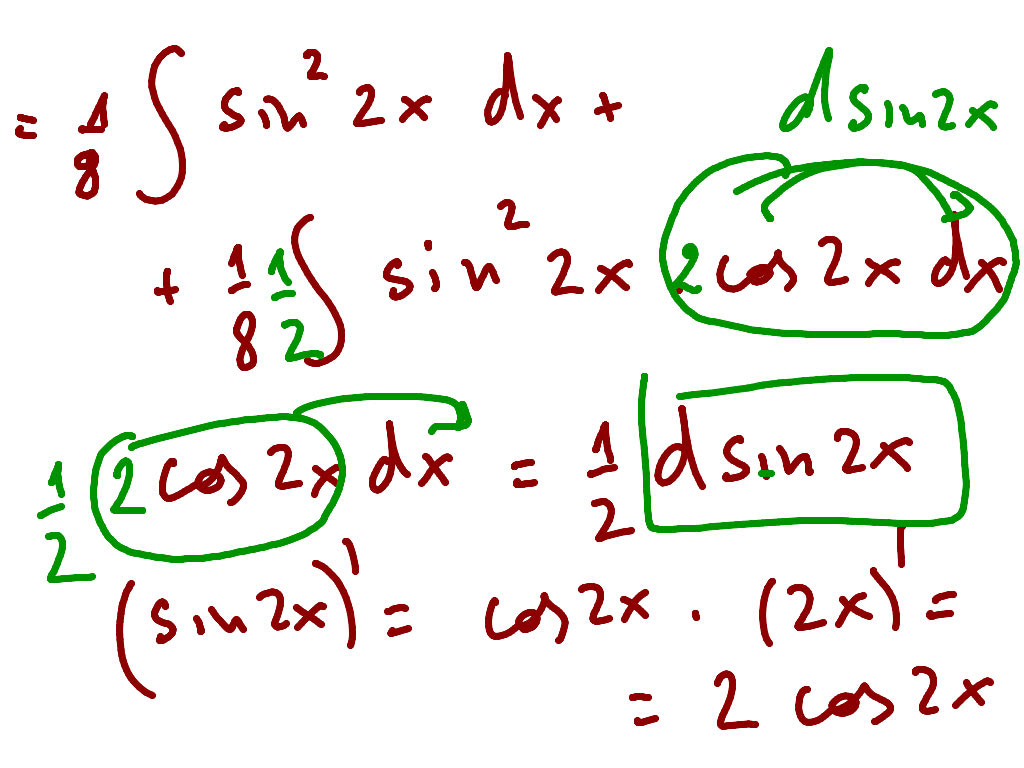 = 1/8 ∫ sin² 2x dx + d sin2x
+ 1/8 1/2 ∫ sin² 2x 2 cos 2x dx
1/2 2 cos 2x dx = 1/2 d sin 2x
(sin 2x)' = cos 2x · (2x)' =
= 2 cos 2x